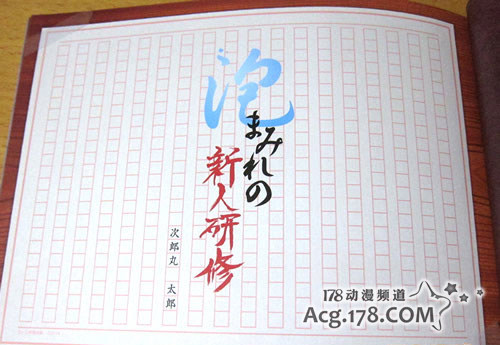 泡まみれの
新人研修
次郎丸 太郎
178动漫频道
Acg.178.COM